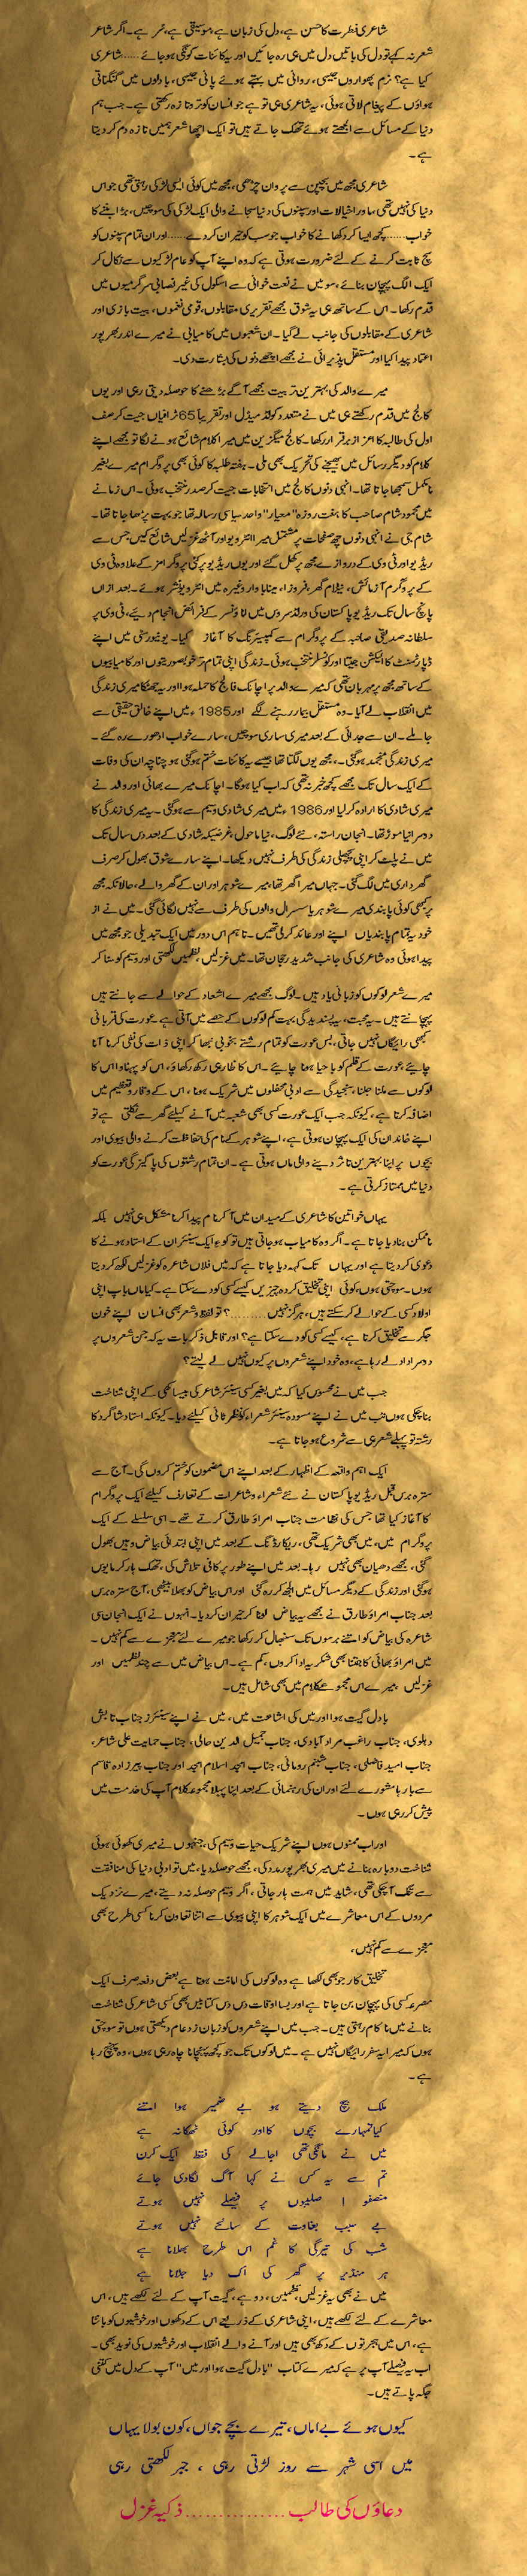 شاعری فطرت کا حسن ہے، دل کی زبان ہے، موسیقی ہے، سُر ہے۔ اگر شاعر
شعر نہ کہے تو دل کی باتیں دل میں ہی رہ جائیں اور یہ کائنات گونگی ہو جائے ...... شاعری
کیا ہے؟ نرم پھواروں جیسی، روانی میں بہتے ہوئے پانی جیسی، بادلوں میں گنگناتی
ہواؤں کے پیغام لاتی ہوئی، یہ شاعری ہی تو ہے جو انسان کو تر و تازہ رکھتی ہے۔ جب ہم
دنیا کے مسائل سے الجھتے ہوئے تھک جاتے ہیں تو ایک اچھا شعر ہمیں تازہ دم کر دیتا
ہے۔
شاعری مجھ میں بچپن سے پروان چڑھی، مجھ میں کوئی ایسی لڑکی رہتی تھی جو اس
دنیا کی نہیں تھی، ماورا خیالات اور سپنوں کی دنیا سجانے والی ایک لڑکی کی سوچیں، بڑا بننے کا
خواب ...... کچھ ایسا کر دکھانے کا خواب جو سب کو حیران کر دے ...... اور ان تمام سپنوں کو
سچ ثابت کرنے کے لئے ضرورت ہوتی ہے کہ وہ اپنے آپ کو عام لڑکیوں سے نکال کر
ایک الگ پہچان بنائے، سو میں نے نعت خوانی سے اسکول کی غیر نصابی سرگرمیوں میں
قدم رکھا۔ اس کے ساتھ ہی یہ شوق مجھے تقریری مقابلوں، قومی نغموں، بیت بازی اور
شاعری کے مقابلوں کی جانب لے گیا۔ ان شعبوں میں کامیابی نے میرے اندر بھرپور
اعتماد پیدا کیا اور مستقل پذیرائی نے مجھے اچھے دنوں کی بشارت دی۔
میرے والد کی بہترین تربیت مجھے آگے بڑھنے کا حوصلہ دیتی رہی اور یوں
کالج میں قدم رکھتے ہی میں نے متعدد گولڈ میڈل اور تقریباً 65 ٹرافیاں جیت کر صف
اول کی طالبہ کا اعزاز برقرار رکھا۔ کالج میگزین میں میرا کلام شائع ہونے لگا تو مجھے اپنے
کلام کو دیگر رسائل میں بھیجنے کی تحریک بھی ملی۔ ہفتہ طلبہ کا کوئی بھی پروگرام میرے بغیر
نامکمل سمجھا جاتا تھا۔ انہی دنوں کالج میں انتخابات جیت کر صدر منتخب ہوئی۔ اس زمانے
میں محمود شام صاحب کا ہفت روزہ "معیار" واحد سیاسی رسالہ تھا جو بہت پڑھا جاتا تھا۔
شام جی نے انہی دنوں چھ صفحات پر مشتمل میرا انٹرویو اور آٹھ غزلیں شائع کیں جس سے
ریڈیو اور ٹی وی کے دروازے مجھ پر کھل گئے اور یوں ریڈیو پر کئی پروگرامز کے علاوہ ٹی وی
کے پروگرم آزمائش، نیلام گھر، فروزاں، مینا بازار وغیرہ میں انٹرویو نشر ہوئے۔ بعد ازاں
پانچ سال تک ریڈیو پاکستان کی ورلڈ سروس میں اناؤنسر کے فرائض انجام دیئے، ٹی وی پر
سلطانہ صدیقی صاحبہ کے پروگرام سے کمپیئرنگ کا آغاز کیا۔ یونیورسٹی میں اپنے
ڈپارٹمنٹ کا الیکشن جیتا اور کونسلر منتخب ہوئی۔ زندگی اپنی تمام تر خوبصورتیوں اور کامیابیوں
کے ساتھ مجھ پر مہربان تھی کہ میرے والد پر اچانک فالج کا حملہ ہوا اور یہ جھٹکا میری زندگی
میں انقلاب لے آیا۔ وہ مستقل بیمار رہنے لگے اور 1985ء میں اپنے خالق حقیقی سے
جا ملے۔ ان سے جدائی کے بعد میری ساری سوچیں، سارے خواب ادھورے رہ گئے۔
میری زندگی منجمد ہو گئی۔ مجھے یوں لگتا تھا جیسے یہ کائنات ختم ہو گئی ہو چنانچہ ان کی وفات
کے ایک سال تک مجھے کچھ خبر نہ تھی کہ اب کیا ہوگا۔ اچانک میرے بھائی اور والدہ نے
میری شادی کا ارادہ کر لیا اور 1986ء میں میری شادی وسیم سے ہو گئی۔ یہ میری زندگی کا
دوسرا نیا موڑ تھا۔ انجان راستہ، نئے لوگ، نیا ماحول، غرضیکہ شادی کے بعد دس سال تک
میں نے پلٹ کر اپنی پچھلی زندگی کی طرف نہیں دیکھا۔ اپنے سارے شوق بھول کر صرف
گھر داری میں لگ گئی۔ جہاں میرا گھر تھا، میرے شوہر اور ان کے گھر والے، حالانکہ مجھ
پر کبھی کوئی پابندی میرے شوہر یا سسرال والوں کی طرف سے نہیں لگائی گئی۔ میں نے از
خود یہ تمام پابندیاں اپنے اوپر عائد کر لی تھیں۔ تاہم اس دور میں ایک تبدیلی جو مجھ میں
پیدا ہوئی وہ شاعری کی جانب شدید رجحان تھا۔ میں غزلیں، نظمیں لکھتی اور وسیم کو سنا کر
میرے شعر لوگوں کو زبانی یاد ہیں۔ لوگ مجھے میرے اشعار کے حوالے سے جانتے ہیں
پہچانتے ہیں۔ یہ محبت، یہ پسندیدگی بہت کم لوگوں کے حصے میں آتی ہے۔ عورت کی قربانی
کبھی رائیگاں نہیں جاتی، بس عورت کو تمام رشتے بخوبی نبھا کر اپنی ذات کی نفی کرنا آنا
چاہیئے، عورت کے قلم کو باحیا ہونا چاہیئے۔ اس کا ظاہری رکھ رکھاؤ، اس کو پہناوا اس کا
لوگوں سے ملنا جلنا، سنجیدگی سے ادبی محفلوں میں شریک ہونا، اس کے وقار و تعظیم میں
اضافہ کرتا ہے، کیونکہ جب ایک عورت کسی بھی شعبہ میں آنے کیلئے گھر سے نکلتی ہے تو
اپنے خاندان کی ایک پہچان ہوتی ہے، اپنے شوہر کے نام کی حفاظت کرنے والی بیوی اور
بچوں پر اپنا بہترین تاثر دینے والی ماں ہوتی ہے۔ ان تمام رشتوں کی پاکیزگی عورت کو
دنیا میں ممتاز کرتی ہے۔
یہاں خواتین کا شاعری کے میدان میں آ کر نام پیدا کرنا مشکل ہی نہیں بلکہ
ناممکن بنا دیا جاتا ہے۔ اگر وہ کامیاب ہو جاتی ہیں تو کوءِ ایک سینئر ان کے استاد ہونے کا
دعویٰ کر دیتا ہے اور یہاں تک کہہ دیا جاتا ہے کہ میں فلاں شاعرہ کو غزلیں لکھ کر دیتا
ہوں۔ سوچتی ہوں، کوئی اپنی تخلیق کردہ چیزیں کیسے کسی کو دے سکتا ہے۔ کیا ماں باپ اپنی
اولاد کسی کے حوالے کر سکتے ہیں، ہرگز نہیں .........؟ تو لفظ و شعر بھی انسان اپنے خون
جگر سے تخلیق کرتا ہے، کیسے کسی کو دے سکتا ہے؟ اور قابل ذکر بات یہ کہ جن شعروں پر
دوسرا داد لے رہا ہے، وہ خود اپنے شعروں پر کیوں نہیں لے لیتے؟
جب میں نے محسوس کیا کہ میں بغیر کسی سینئر شاعر کی بیساکھی کے اپنی شناخت
بنا چکی ہوں تب میں نے اپنے مسودہ سینئر شعراء کو نظر ثانی کیلئے دیا۔ کیونکہ استاد شاگرد کا
رشتہ تو پہلے شعر ہی سے شروع ہو جاتا ہے۔
ایک اہم واقعہ کے اظہار کے بعد اپنے اس مضمون کو ختم کروں گی۔ آج سے
سترہ برس قبل ریڈیو پاکستان نے نئے شعراء و شاعرات کے تعارف کیلئے ایک پروگرام
کا آغاز کیا تھا جس کی نظامت جناب امراؤ طارق کرتے تھے۔ اسی سلسلے کے ایک
پروگرام میں، میں بھی شریک تھی، ریکارڈنگ کے بعد میں اپنی ابتدائی بیاض وہیں بھول
گئی، مجھے دھیان بھی نہیں رہا۔ بعد میں اپنے طور پر کافی تلاش کی، تھک ہار کر مایوس
ہو گئی اور زندگی کے دیگر مسائل میں الجھ کر رہ گئی اور اس بیاض کو بھلا بیٹھی، آج سترہ برس
بعد جناب امراؤ طارق نے مجھے یہ بیاض لوٹا کر حیران کر دیا۔ انہوں نے ایک انجان سی
شاعرہ کی بیاض کو اتنے برسوں تک سنبھال کر رکھا جو میرے لئے معجزے سے کم نہیں۔
میں امراؤ بھائی کا جتنا بھی شکریہ ادا کروں، کم ہے۔ اس بیاض میں سے چند نظمیں اور
غزلیں میرے اس مجموعہ کلام میں بھی شامل ہیں۔
بادل گیت ہوا اور میں کی اشاعت میں، میں نے اپنے سینئرز جناب تابش
دہلوی، جناب راغب مراد آبادی، جناب جمیل الدین عالی، جناب حمایت علی شاعر،
جناب امید فاضلی، جناب شبنم رومانی، جناب امجد اسلام امجد اور جناب پیرزادہ قاسم
سے بارہا مشورے لئے اور ان کی رہنمائی کے بعد اپنا پہلا مجموعہ کلام آپ کی خدمت میں
پیش کر رہی ہوں۔
اور اب ممنون ہوں اپنے شریک حیات وسیم کی، جنہوں نے میری کھوئی ہوئی
شناخت دوبارہ بنانے میں میری بھرپور مدد کی، مجھے حوصلہ دیا، میں تو ادبی دنیا کی منافقت
سے تنگ آ چکی تھی، شاید میں ہمت ہار جاتی، اگر وسیم حوصلہ نہ دیتے، میرے نزدیک
مردوں کے اس معاشرے میں ایک شوہر کا اپنی بیوی سے اتنا تعاون کرنا کسی طرح بھی
معجزے سے کم نہیں،
تخلیق کار جو بھی لکھتا ہے وہ لوگوں کی امانت ہوتا ہے بعض دفعہ صرف ایک
مصرعہ کسی کی پہچان بن جاتا ہے اور بسا اوقات دس دس کتابیں بھی کسی شاعر کی شناخت
بنانے میں ناکام رہتی ہیں۔ جب میں اپنے شعروں کو زبان زد عام دیکھتی ہوں تو سوچتی
ہوں کہ میرا یہ سفر رائیگاں نہیں ہے۔ میں لوگوں تک جو کچھ پہنچانا چاہ رہی ہوں، وہ پہنچ رہا
ہے۔
ملک بیچ دیتے ہو بے ضمیر ہو اتنے
کیا تمہارے بچوں کا اور کوئی ٹھکانہ ہے
میں نے مانگی تھی اجالے کی فقط ایک کرن
تم سے یہ کس نے کہا آگ لگا دی جائے
منصفو ! صلیبوں پر فیصلے نہیں ہوتے
بے سبب بغاوت کے سانحے نہیں ہوتے
شب کی تیرگی کا غم اس طرح بھلانا ہے
ہر منڈیر پر گھر کی اک دیا جلانا ہے
میں نے بھی یہ غزلیں، نظمیں، دوہے، گیت آپ کے لئے لکھے ہیں، اس
معاشرے کے لئے لکھے ہیں، اپنی شاعری کے ذریعے اس کے دکھوں اور خوشیوں کو بانٹا
ہے، اس میں ہجرتوں کے دکھ بھی ہیں اور آنے والے انقلاب اور خوشیوں کی نوید بھی۔
اب یہ فیصلے آپ پر ہے کہ میرے کتاب "بادل گیت ہوا اور میں" آپ کے دل میں کتنی
جگہ پاتے ہیں۔
کیوں ہوئے بے اماں، تیرے بچے جواں، کون بولا یہاں
میں اسی شہر سے روز لڑتی رہی ، جبر لکھتی رہی
دعاؤں کی طالب ............... ذکیہ غزل